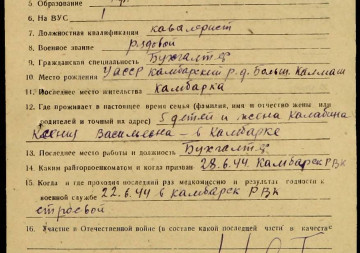 5. Образование
6. На ВУС 1
7. Должностная квалификация кавалерист
8. Военное звание рядовой
9. Гражданская специальность Бухгалтер
10. Место рождения УАССР Камбарский р.д. Больш. Калмаш
11. Последнее место жительства Камбарка
12. Где проживает в настоящее время семья (фамилия, имя и отчество жены или
родителей и точный их адрес) 5 детей и жена Калабина
Ксения Васильевна - в Камбарке
13. Последнее место работы и должность Бухгалтер
14. Каким райгорвоенкоматом и когда призван 28.6.44 Камбарск РВК
15. Когда и где проходил последний раз медкомиссию и результат годности к
военной службе 22.6.44 в Камбарск РВК
строевой
16. Участие в Отечественной войне (в составе какой последней части и качестве